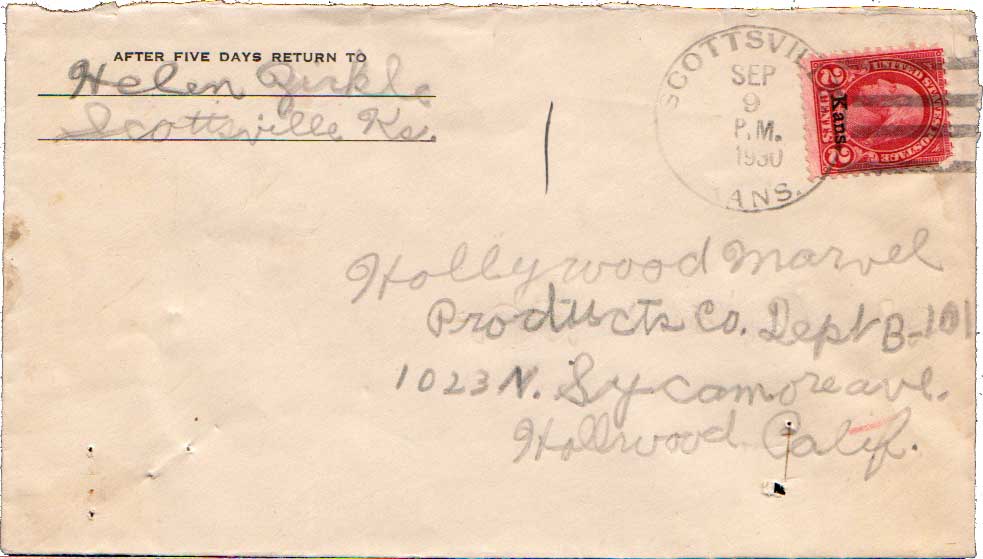 AFTER FIVE DAYS RETURN TO
Helen
Scottsville Ks.
SCOTTSVIL
SEP
9
P.M.
1930
ANS.
UNITED STATES POSTAGE
2 CENTS 2
Kans.
Hollywood Marvel
Products Co. Dept B-101
1023 N. Sycamore ave.
Hollwood Calif.